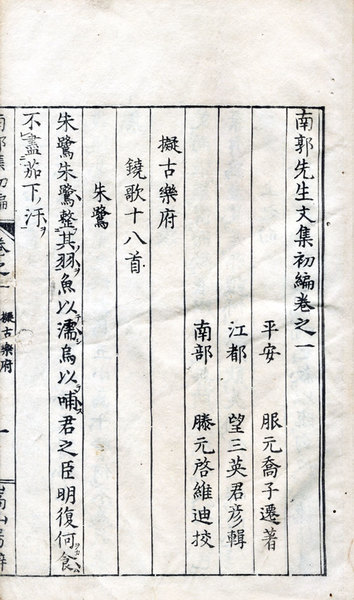 南郭先生文集初編卷之一
平安 服元喬子遷著
江都 望三英君彦輯
南部 滕元啓維迪挍
擬古樂府
鐃歌十八首
朱鷺
朱鷺朱鷺整其羽魚以濡烏以哺君之臣明復何食
不盡茄下汙
南郭集初編 卷之一 擬古樂府 一